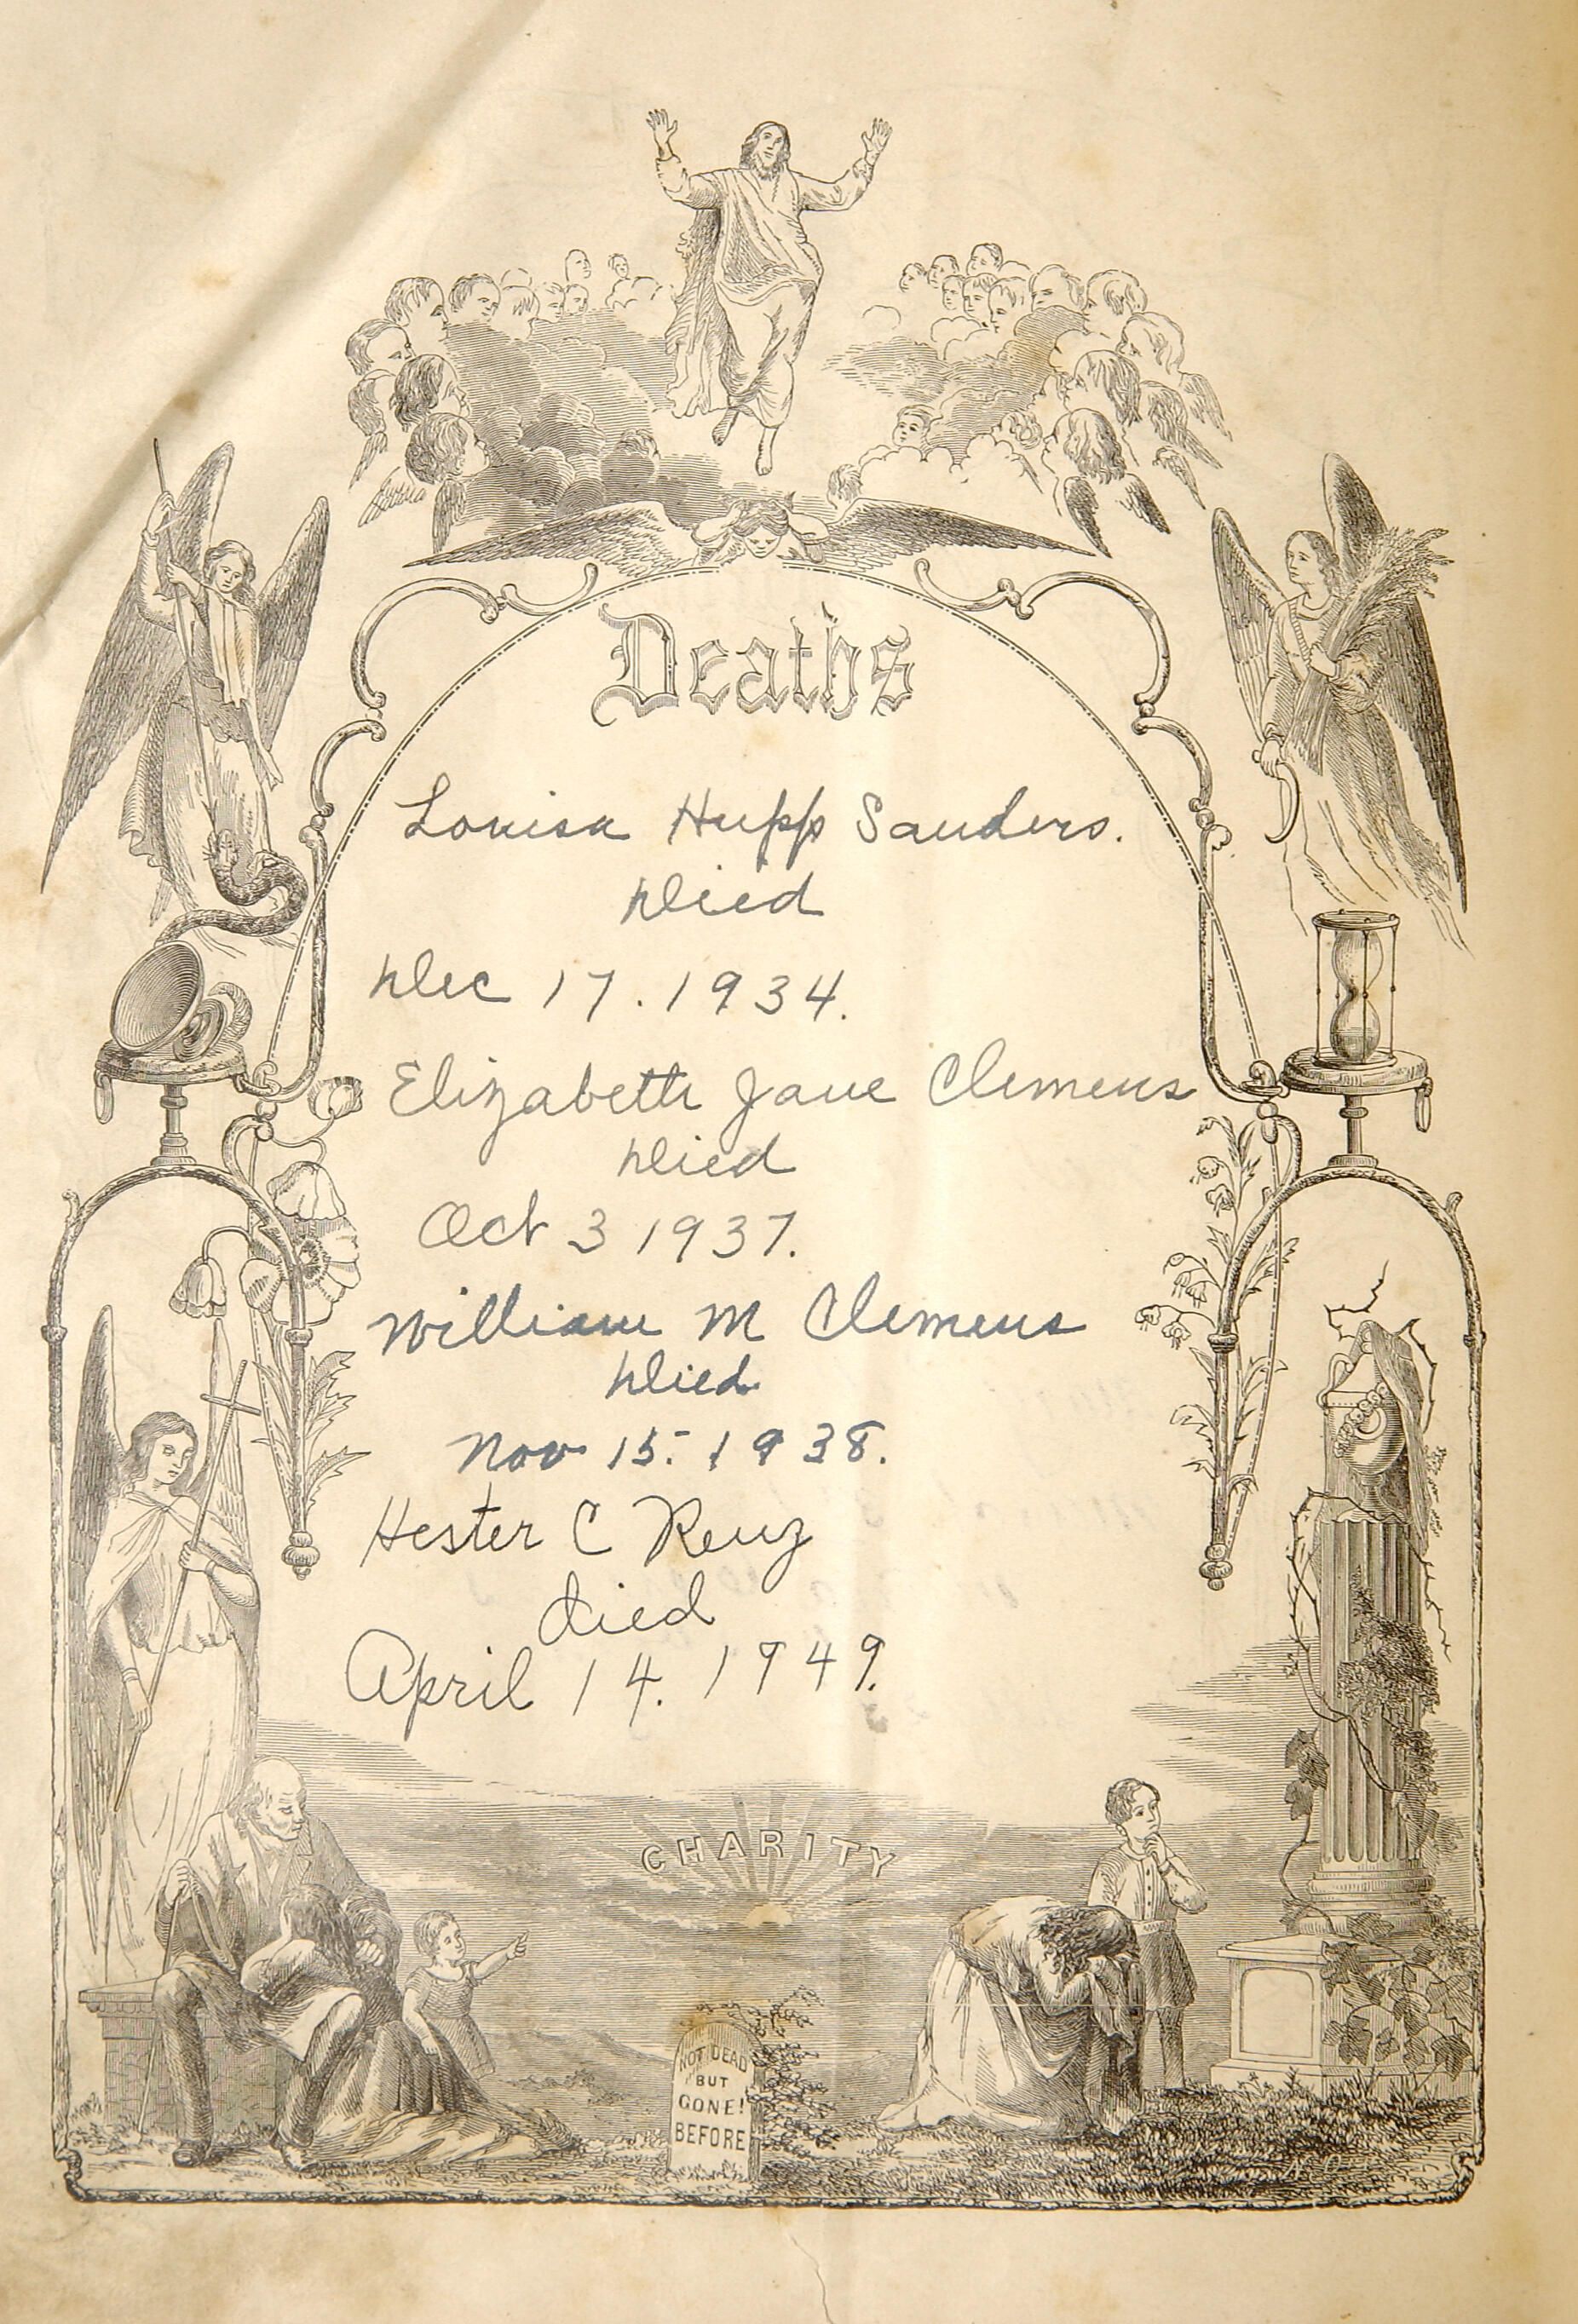 Deaths
Louisa Hupp Sanders.
Died
Dec 17. 1934.
Elizabeth Jane Clemens
Died
Oct 3 1937.
William M Clemens
Died
Nov 15. 1938.
Hester C Renz
died
April 14. 1949.
CHARITY
NOT DEAD
BUT
GONE!
BEFORE